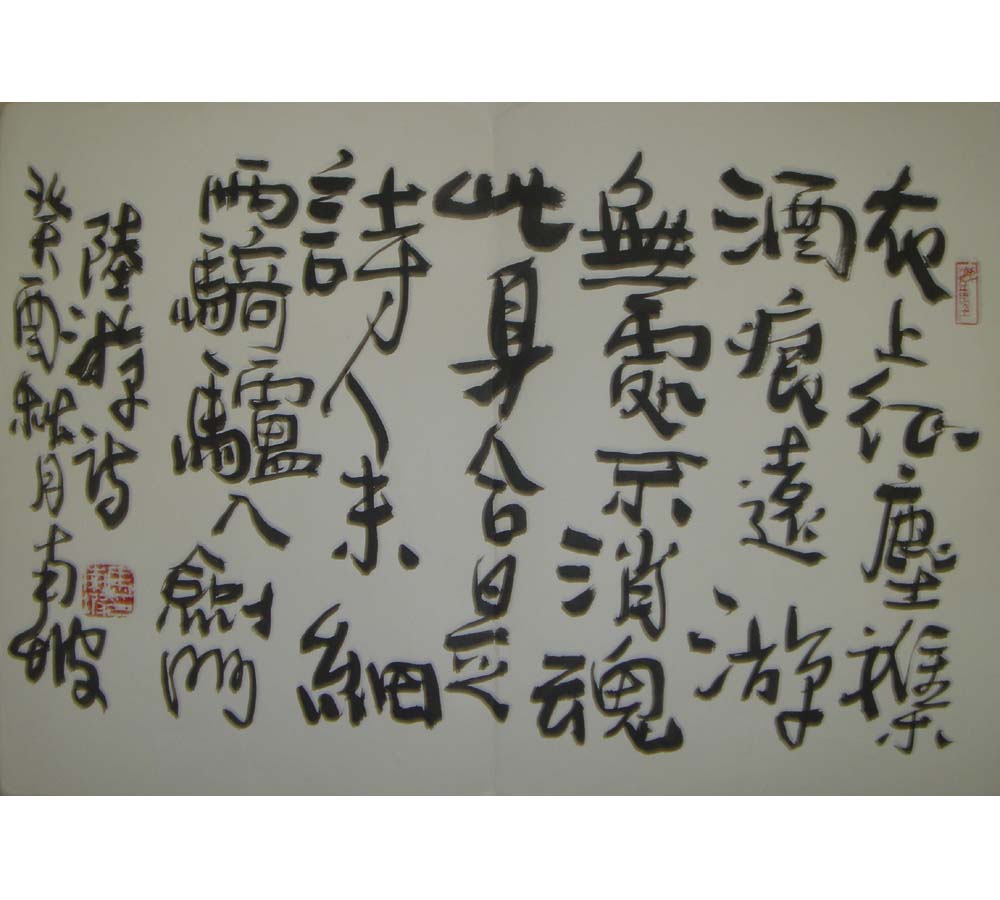 衣上征塵雜
酒痕遠游
無處不消魂
此身合是
詩人未細
雨騎驢入劍門
陸游詩
癸酉秋月南坡